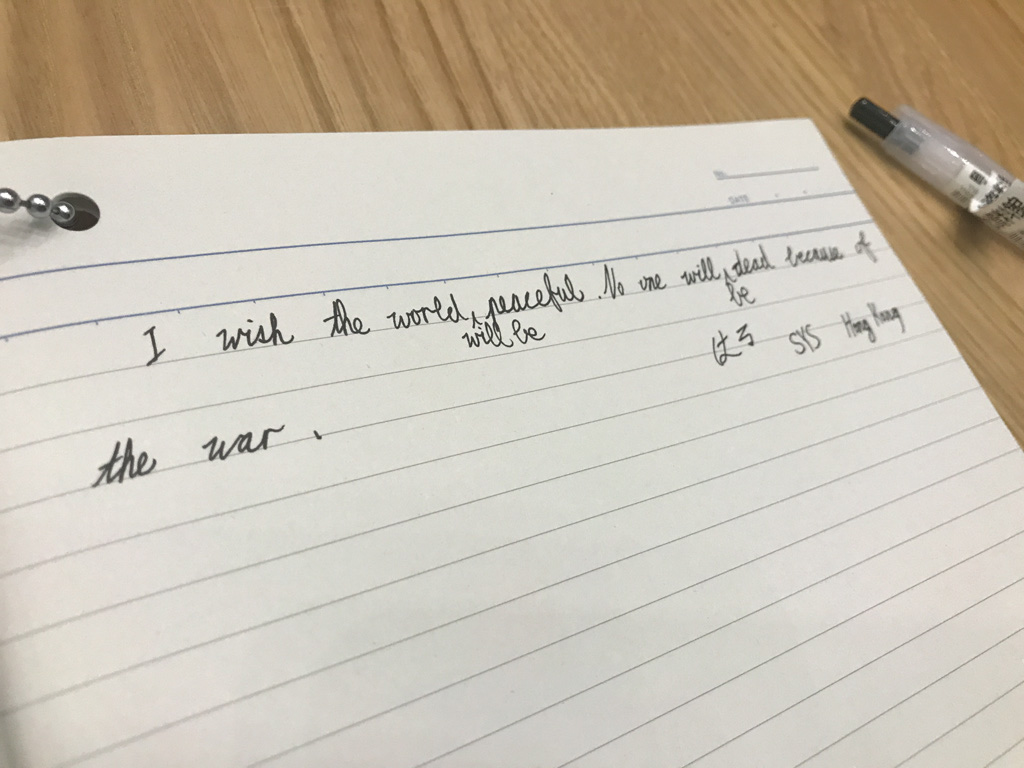 I wish the world will be peaceful. No one will be dead because of
the war.
SYS Hong Kong
DATE